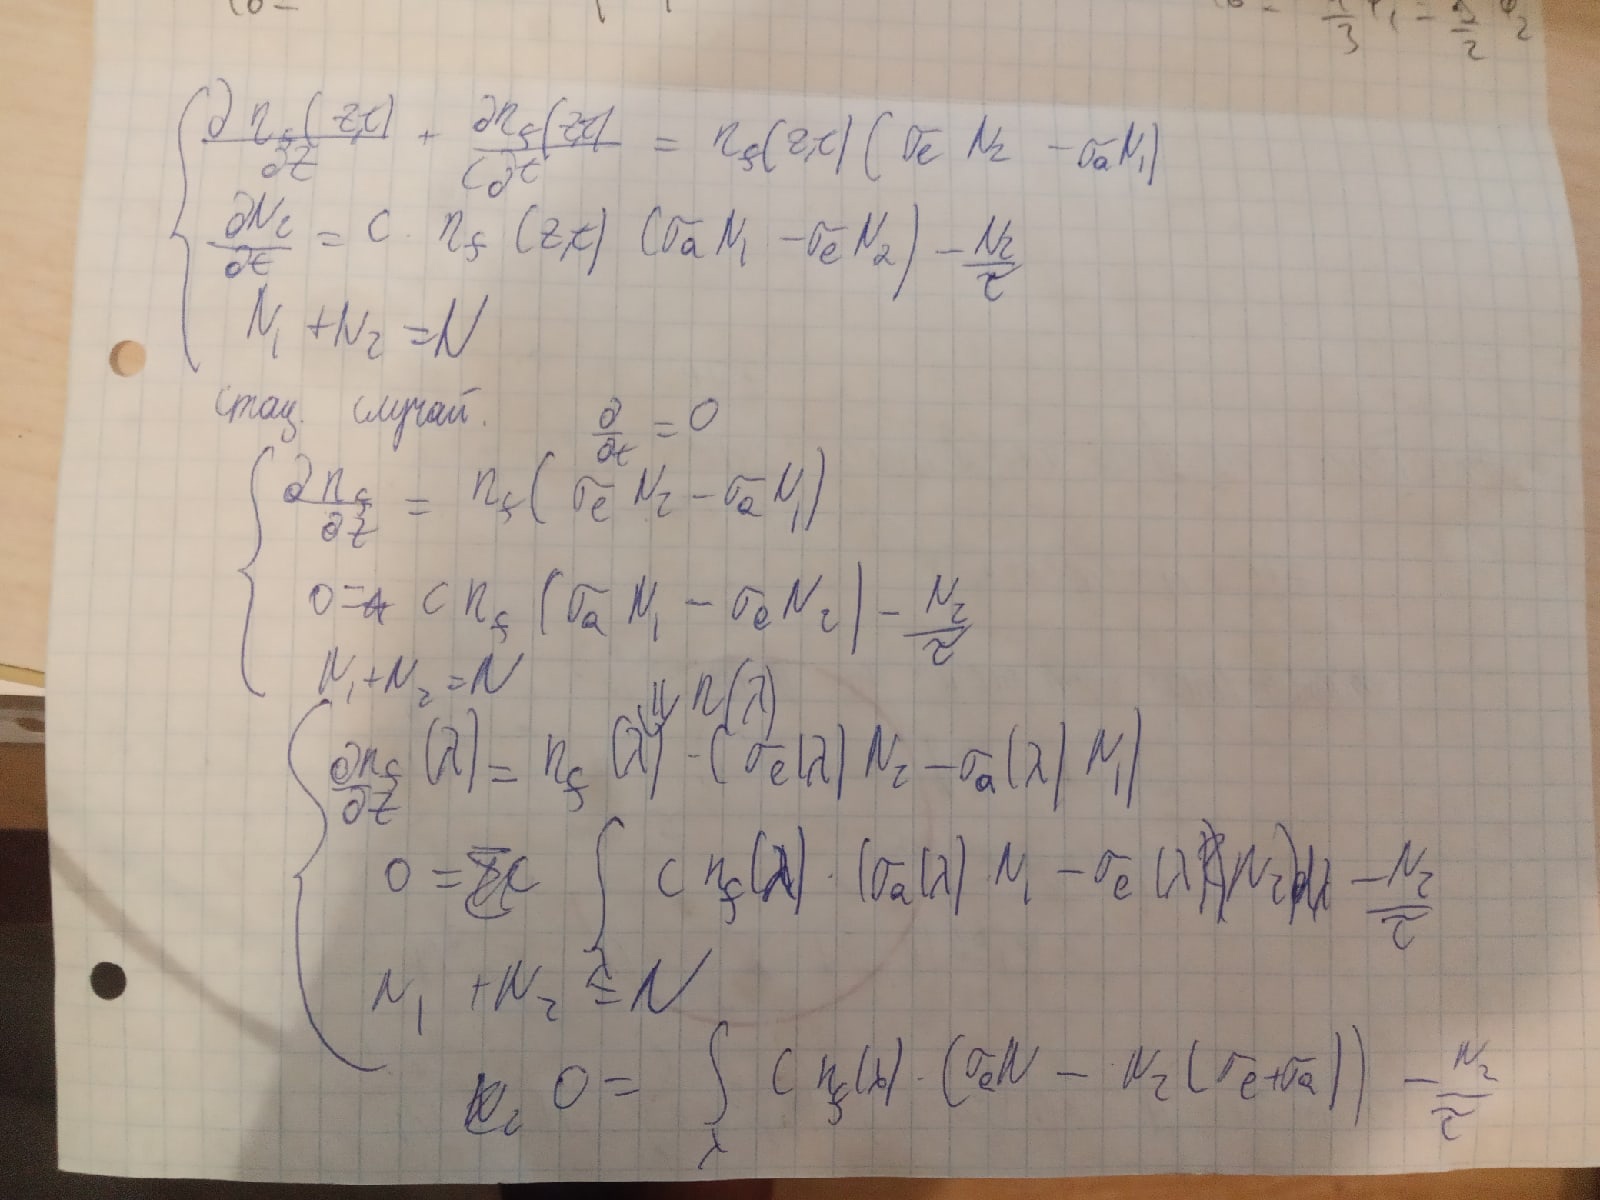 ∂n_f(z,t)/∂z + ∂n_f(z,t)/(c∂t) = n_f(z,t)(σ_e N_2 − σ_a N_1)
∂N_2/∂t = c · n_f(z,t)(σ_a N_1 − σ_e N_2) − N_2/τ
N_1 + N_2 = N
стац. случай. ∂/∂t = 0
∂n_f/∂z = n_f(σ_e N_2 − σ_a N_1)
0 = c n_f(σ_a N_1 − σ_e N_2) − N_2/τ
N_1 + N_2 = N
⇓ n(λ)
∂n_f/∂z (λ) = n_f(λ) · (σ_e(λ) N_2 − σ_a(λ) N_1)
0 = ∫_λ c n_f(λ) · (σ_a(λ) · N_1 − σ_e(λ) N_2)dλ − N_2/τ
N_1 + N_2 = N
0 = ∫_λ c n_f(λ) · (σ_a N − N_2(σ_e + σ_a)) − N_2/τ